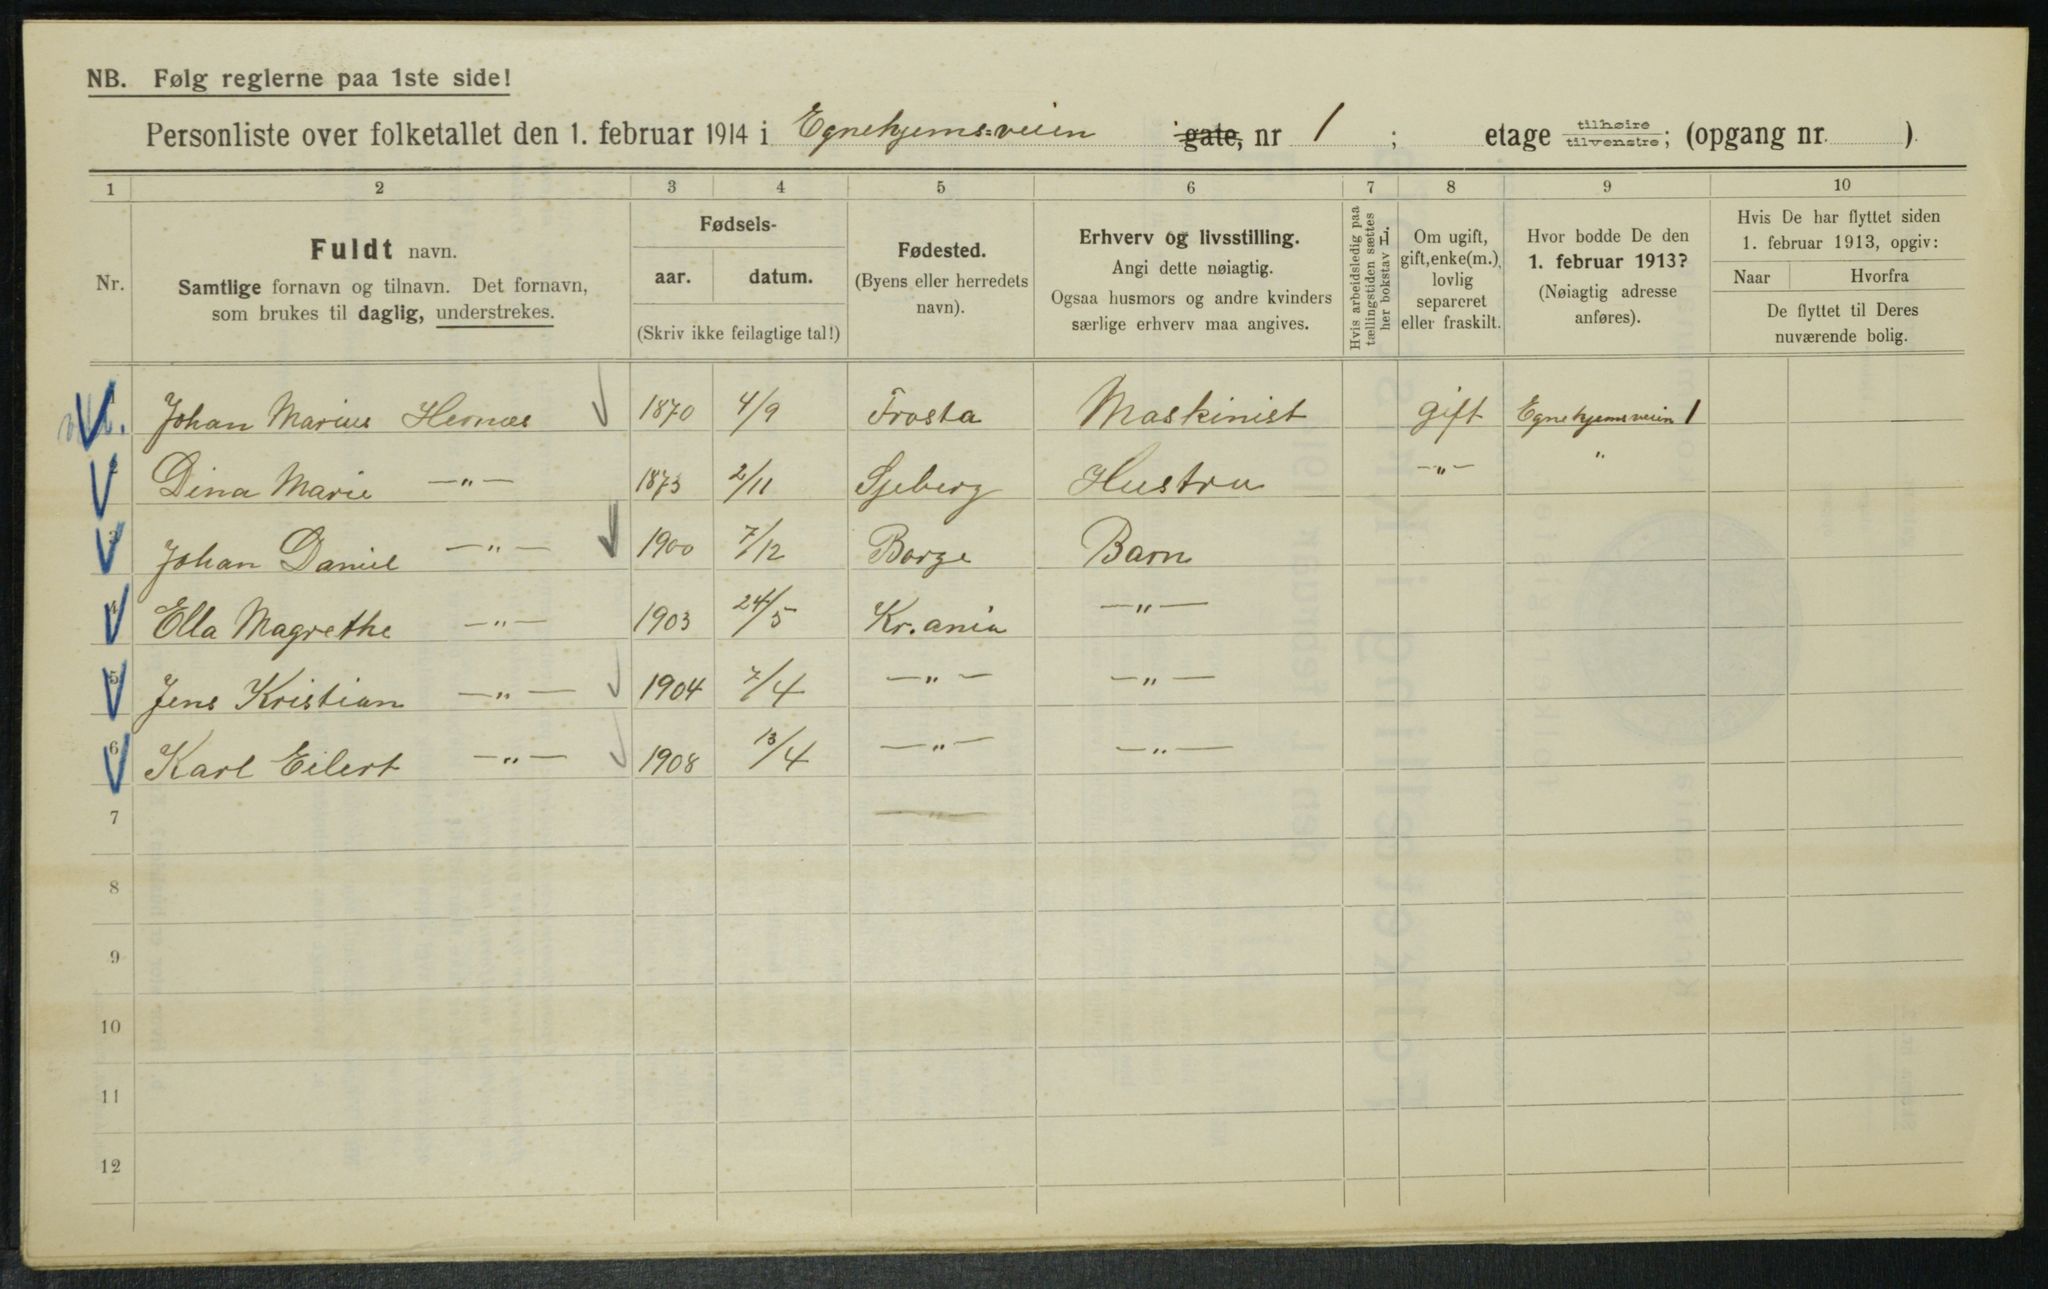 NB. Følg reglerne paa 1ste side!
Personliste over folketallet den 1. februar 1914 i Egnehjems=veien gate, nr 1 ; etage tilhøire tilvenstre; (opgang nr. )
1 2 3 4 5 6 7 8 9 10
Nr.
Fuldt navn.
Samtlige fornavn og tilnavn. Det fornavn,
som brukes til daglig, understrekes.
Fødsels-
aar. datum.
(Skriv ikke feilagtige tal!)
Fødested.
(Byens eller herredets
navn).
Erhverv og livsstilling.
Angi dette nøiagtig.
Ogsaa husmors og andre kvinders
særlige erhverv maa angives.
Hvis arbeidsledig paa
tællingstiden sættes
her bokstav L.
Om ugift,
gift, enke(m.),
lovlig
separeret
eller fraskilt.
Hvor bodde De den
1. februar 1913?
(Nøiagtig adresse
anføres).
Hvis De har flyttet siden
1. februar 1913, opgiv:
Naar Hvorfra
De flyttet til Deres
nuværende bolig.
Johan Marius Hernæs 1870 4/9 Frosta Maskinist gift Egnehjemsveien 1
Dina Marie —"— 1873 2/11 Sjeberg Hustru —"— "
3 Johan Daniel —"— 1900 7/12 Borge Barn
4 Ella Magrethe —"— 1903 24/5 Kr.ania —"—
5 Jens Kristian —"— 1904 7/4 —"— —"—
6 Karl Eilert —"— 1908 13/4 —"— —"—
7 —"—
8
9
10
11
12